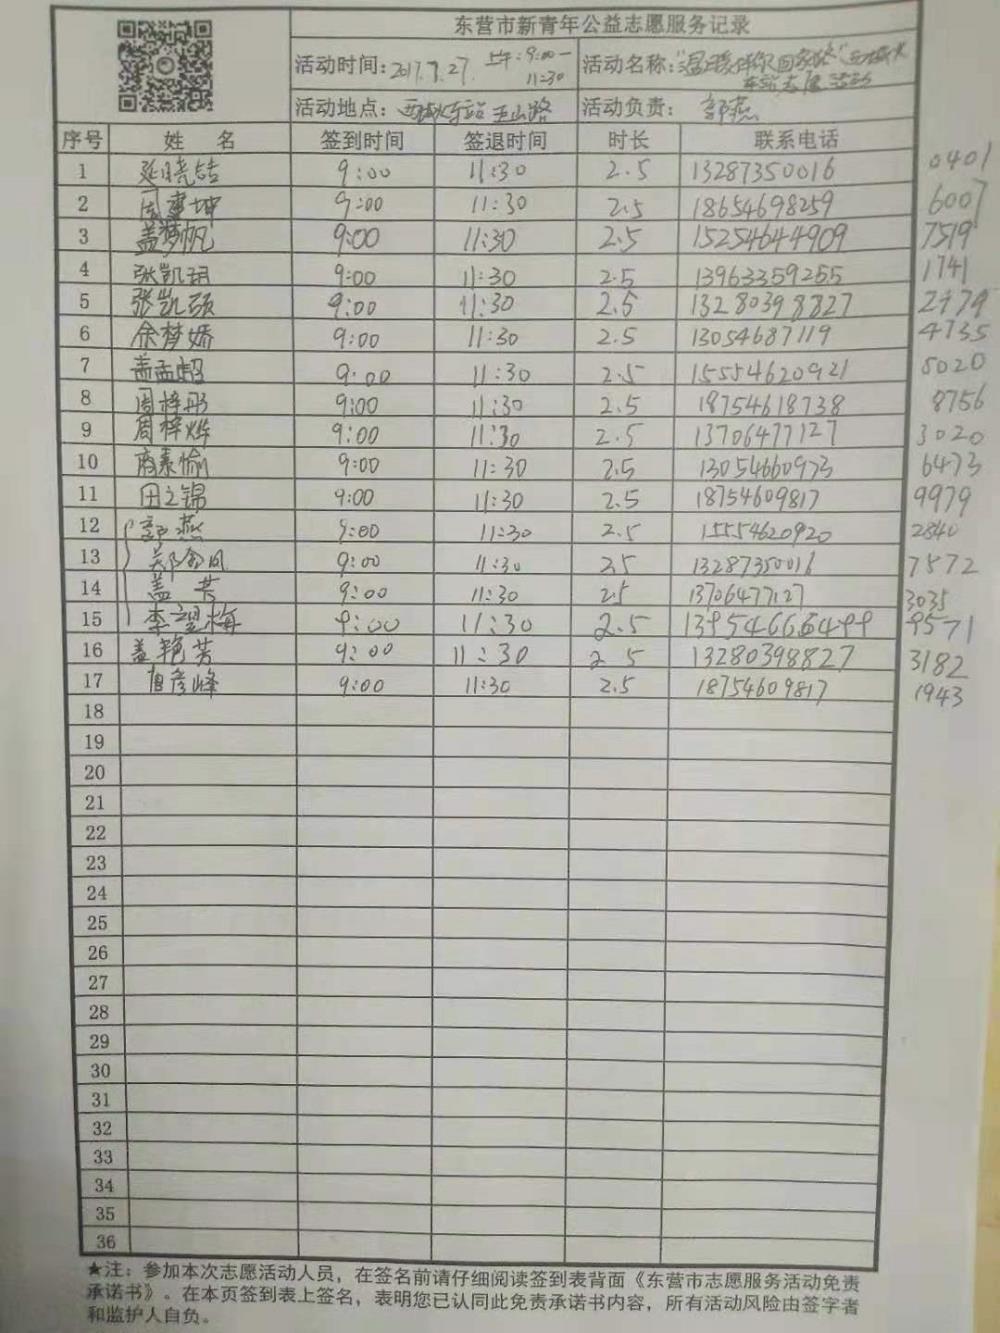 东营市新青年公益志愿服务记录
活动时间: 2017.7.27. 上午: 9:00— 11:30 活动名称: "温暖伴你回家路" 西城火车站志愿活动
活动地点: 西城火车站 玉山路 活动负责: 郭燕
序号 姓 名 签到时间 签退时间 时长 联系电话
1 延晓喆 9:00 11:30 2.5 13287350016 0401
2 周建坤 9:00 11:30 2.5 18654698259 6007
3 盖梦帆 9:00 11:30 2.5 15254644909 7519
4 张凯玥 9:00 11:30 2.5 13963359255 1741
5 张凯硕 9:00 11:30 2.5 13280398827 2979
6 余梦娇 9:00 11:30 2.5 13054687119 4735
7 盖孟超 9:00 11:30 2.5 15554620921 5020
8 周梓彤 9:00 11:30 2.5 18754618738 8756
9 周梓烨 9:00 11:30 2.5 13706477127 3020
10 商素愉 9:00 11:30 2.5 13054660973 6473
11 田之锦 9:00 11:30 2.5 18754609817 9979
12 郭燕 9:00 11:30 2.5 15554620920 2840
13 郑金凤 9:00 11:30 2.5 13287350016 7572
14 盖芳 9:00 11:30 2.5 13706477127 3035
15 李望梅 9:00 11:30 2.5 13954666499 9571
16 盖艳芳 9:00 11:30 2.5 13280398827 3182
17 田彦峰 9:00 11:30 2.5 18754609817 1943
18
19
20
21
22
23
24
25
26
27
28
29
30
31
32
33
34
35
36
★注: 参加本次志愿活动人员，在签名前请仔细阅读签到表背面《东营市志愿服务活动免责
承诺书》。在本页签到表上签名，表明您已认同此免责承诺书内容，所有活动风险由签字者
和监护人自负。